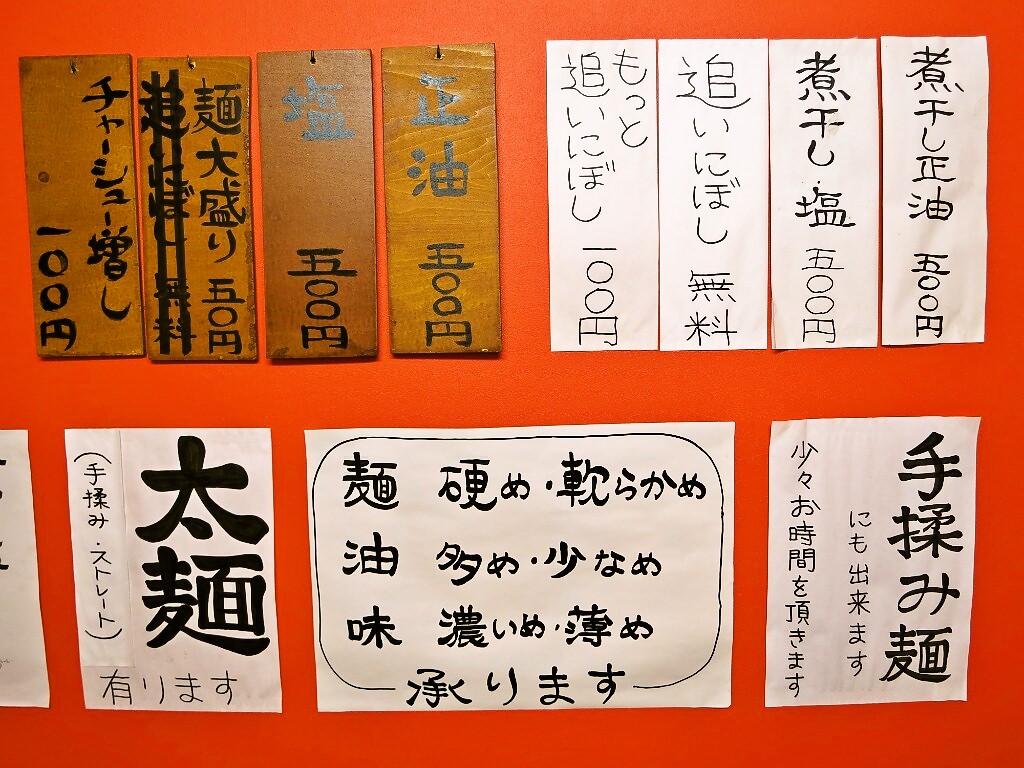 煮干し正油 五〇〇円
煮干し塩 五〇〇円
追いにぼし 無料
もっと
追いにぼし 一〇〇円
正油 五〇〇円
塩 五〇〇円
麺大盛り 五〇円
追いにぼし 無料
チャーシュー増し
一〇〇円
手揉み麺
にも出来ます
少々お時間を頂きます
麺 硬め・軟らかめ
油 多め・少なめ
味 濃いめ・薄め
承ります
太麺
(手揉み・ストレート)
有ります